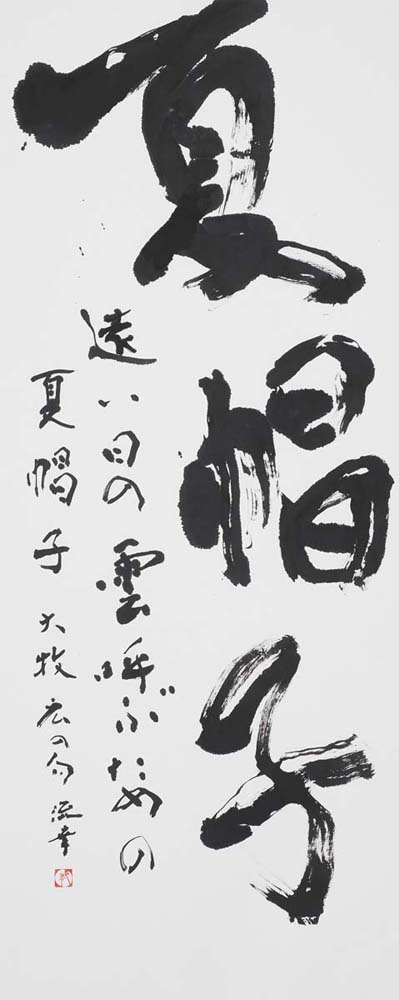 夏帽子
遠い日の雲呼ぶための
夏帽子 大牧広の句 流幸